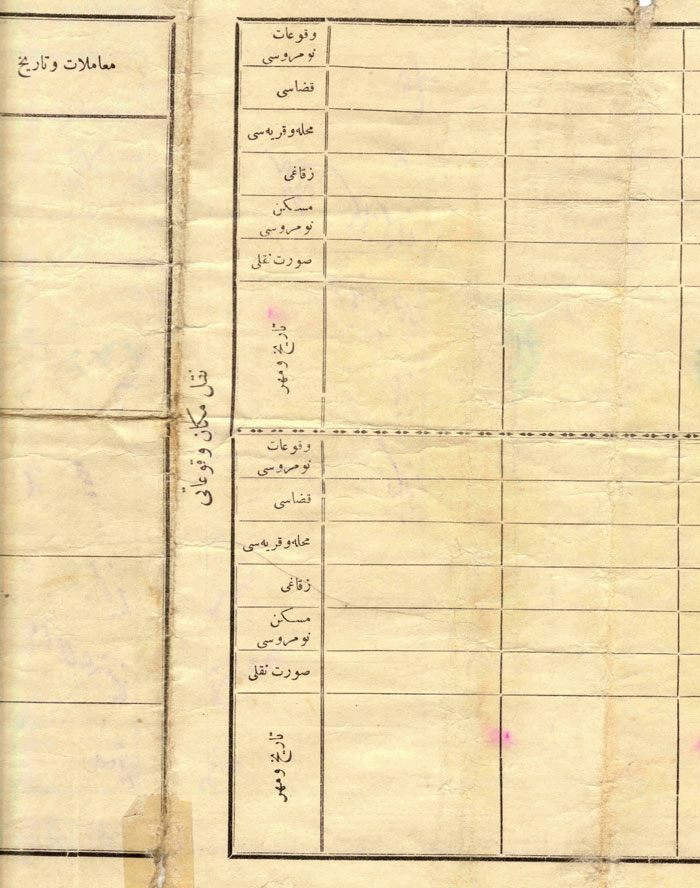 معاملات و تاريخ
نقل مكان وقوعاتى
وقوعات
نومروسى
قضاسى
محله و قريه‌سى
زقاغى
مسكن
نومروسى
صورت نقلى
تاريخ و مهر
وقوعات
نومروسى
قضاسى
محله و قريه‌سى
زقاغى
مسكن
نومروسى
صورت نقلى
تاريخ و مهر